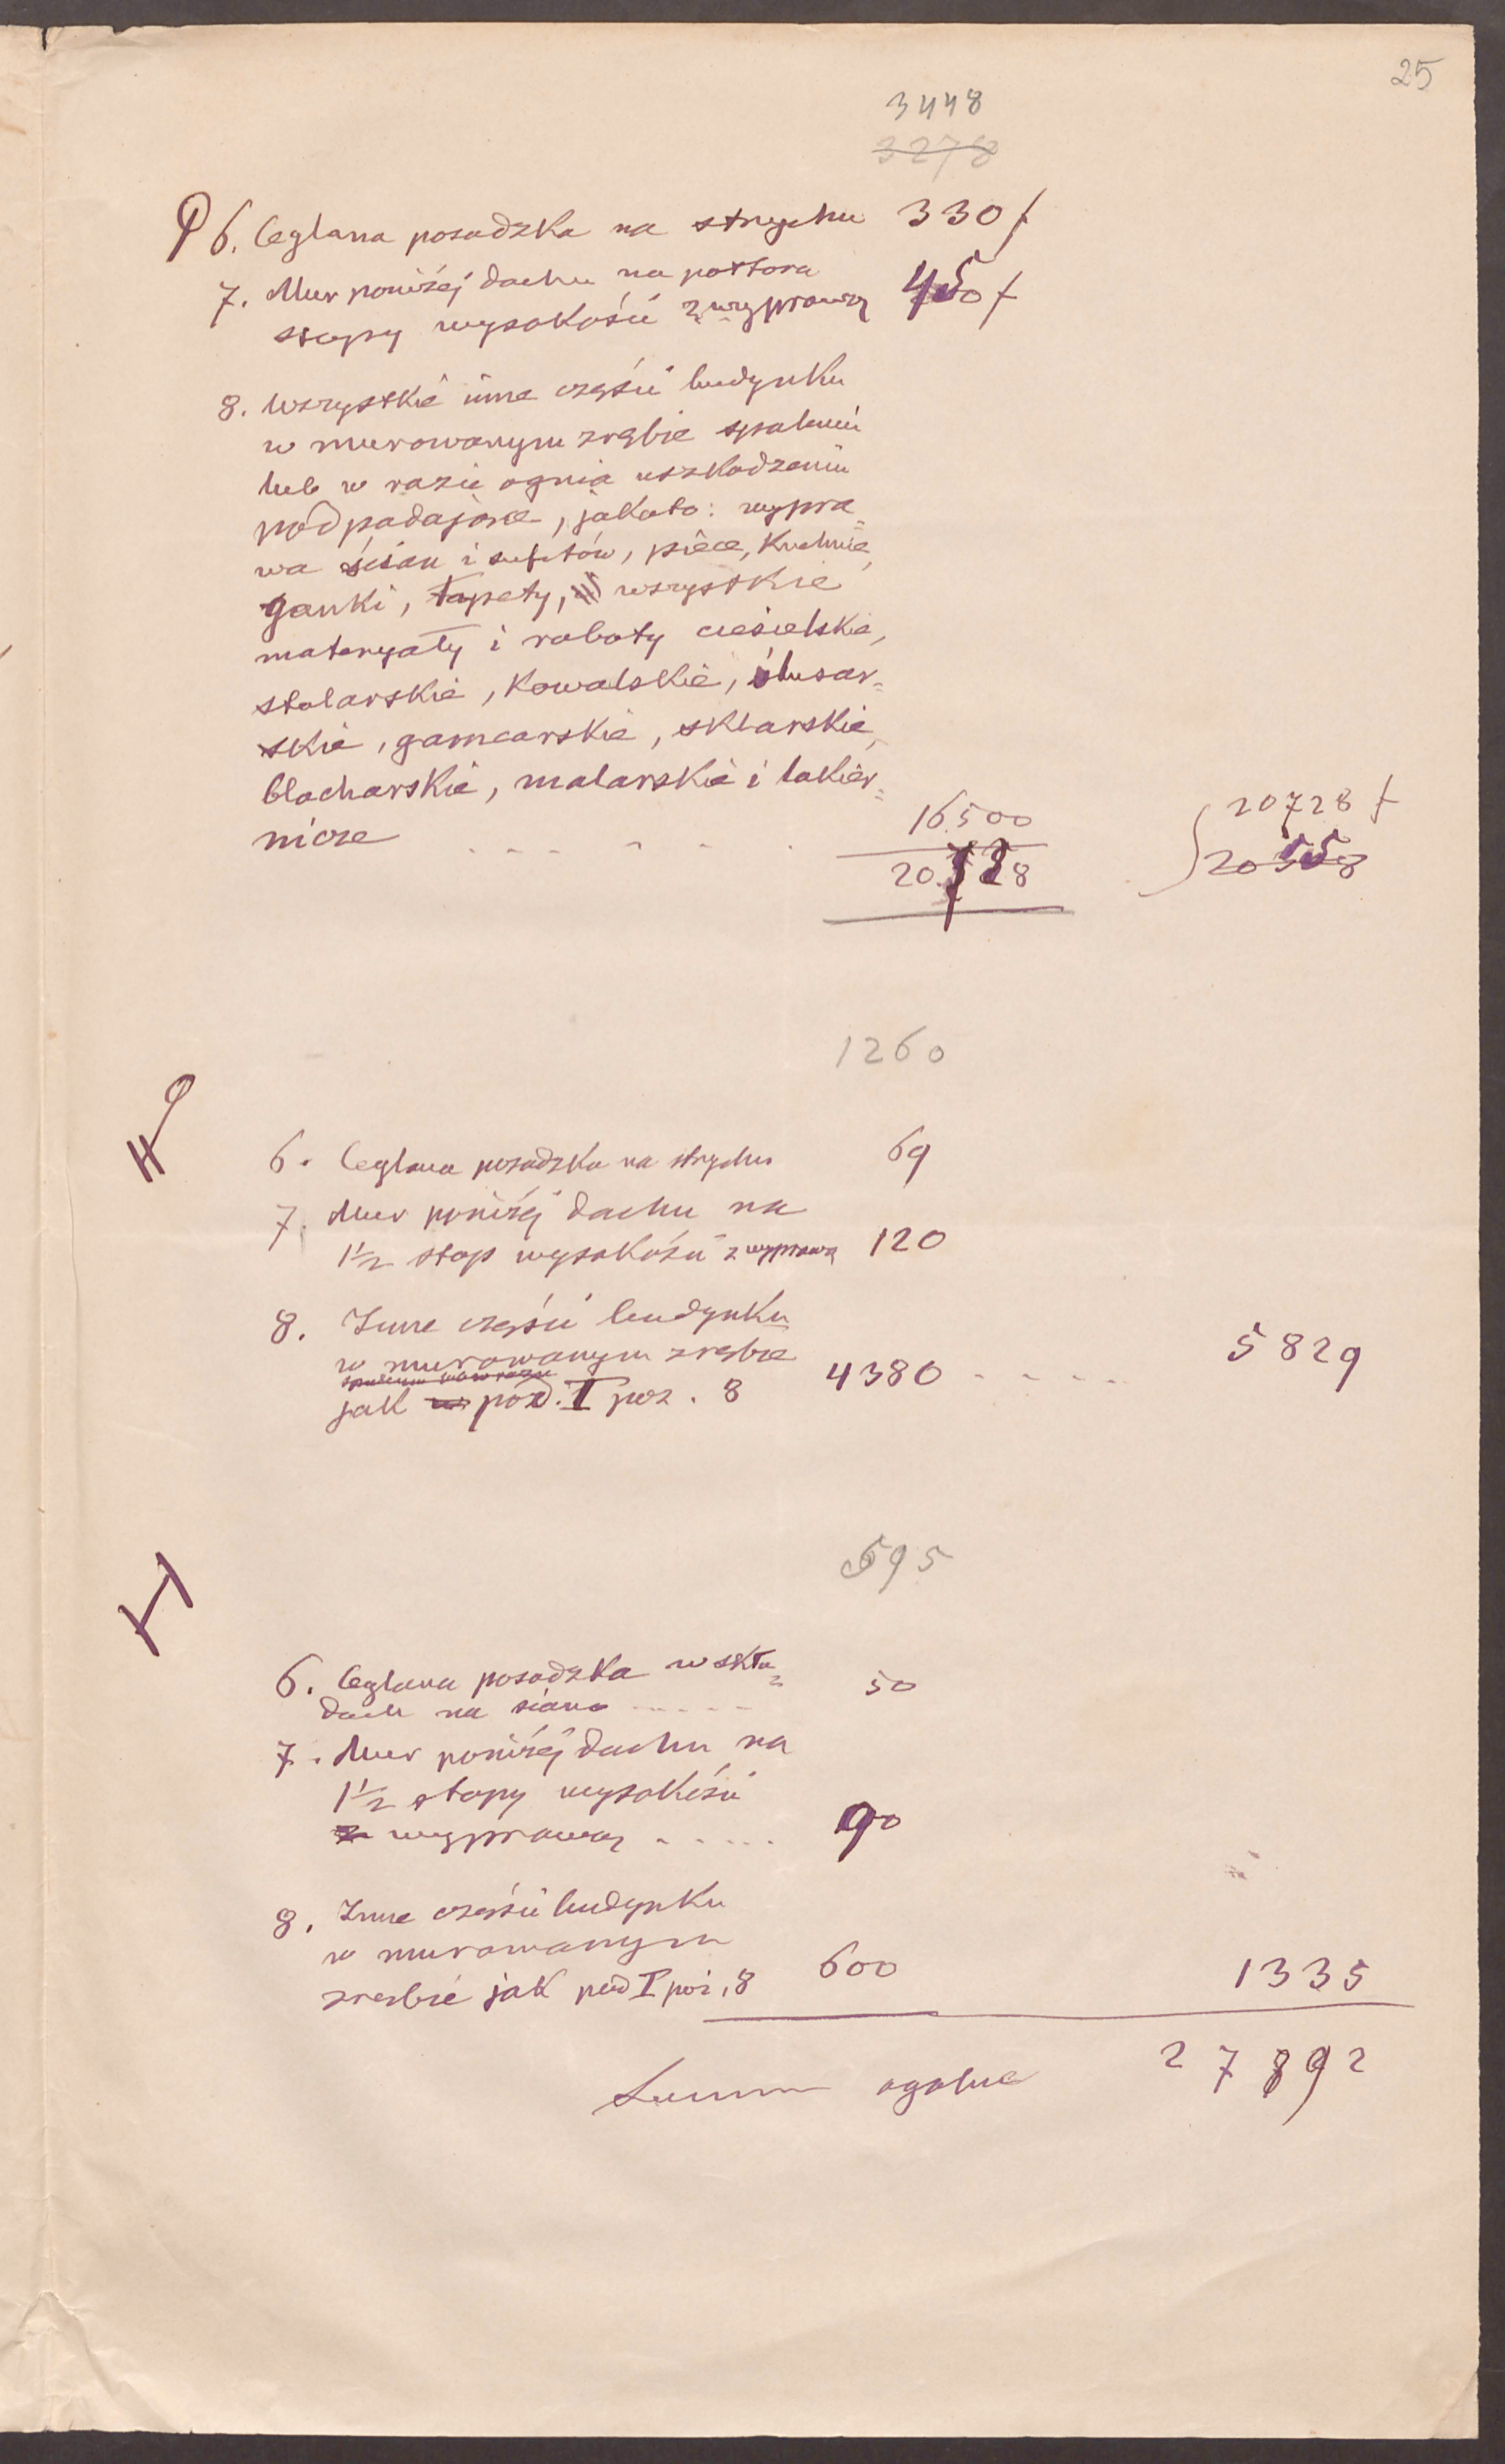 25
3448
3278
6. Ceglana posadzka na strychu 330 f
7. Mur poniżéj dachu na poltora
stopy wysokości z wyprawą 450 f
8. Wszystkie inne części budynku
w murowanym zrębie spaleniu
lub w razie ognia uszkodzeniu
podpadające, jakoto: wypra=
wa ścian i sufitów, piece, kuchnie,
ganki, tapety, wszystkie
materyały i roboty ciesielskie,
stolarskie, kowalskie, ślusar=
skie, garncarskie, sklarskie,
blacharskie, malarskie i lakier=
nicze - - - - - - 16500
20728 20728 f
20558
1260
6. Ceglana posadzka na strychu 69
7. Mur poniżéj dachu na
1½ stop wysokości z wyprawą 120
8. Inne części budynku
w murowanym zrębie
jak pod. I poz. 8 4380 - - - - - 5829
695
6. Ceglana posadzka w skła=
dach na siano - - - - - 50
7. Mur poniżéj dachu na
1½ stopy wysokości
z wyprawą - - - - - 90
8. Inne części budynku
w murowanym
zrębie jak pod I poz. 8 600 1335
Summa ogolna 27892